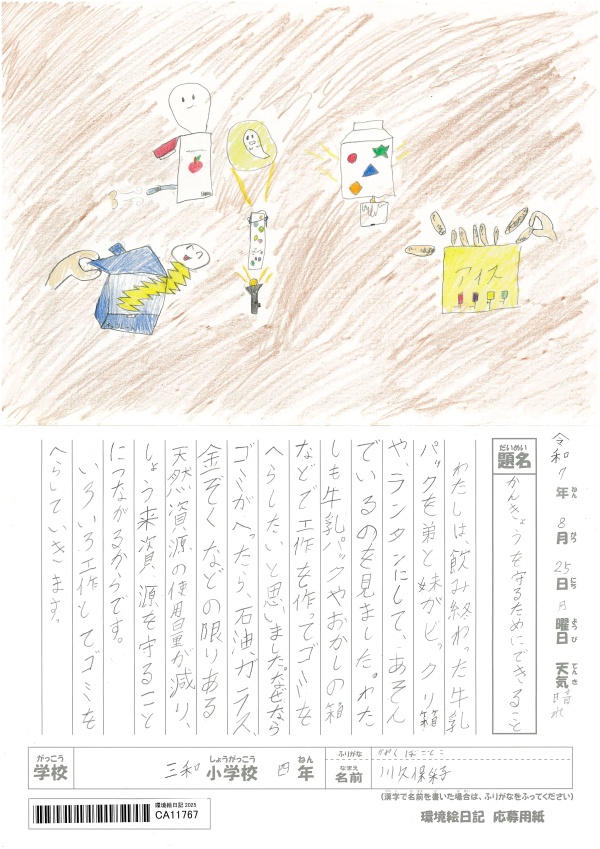 アイス
令和7年 8月 25日 月曜日 天気 晴れ
ねん がつ にち ようび てんき
だいめい
題名
かんきょうを守るためにできること
わたしは、飲み終わった牛乳
パックを弟と妹がビックリ箱
や、ランタンにして、あそん
でいるのを見ました。わた
しも牛乳パックやおかしの箱
などで工作を作ってゴミを
へらしたいと思いました。なぜなら
ゴミがへったら、石油、ガラス、
金ぞくなどの限りある
天然資源の使用量が減り、
しょう来資源を守ること
につながるからです。
いろいろ工作してゴミを
へらしていきます。
がっこう
学校
三和 小学校 四 年
しょうがっこう ねん
ふりがな
なまえ
名前
川久保
(漢字で名前を書いた場合は、ふりがなをふってください)
環境絵日記 応募用紙
環境絵日記 2025
CA11767